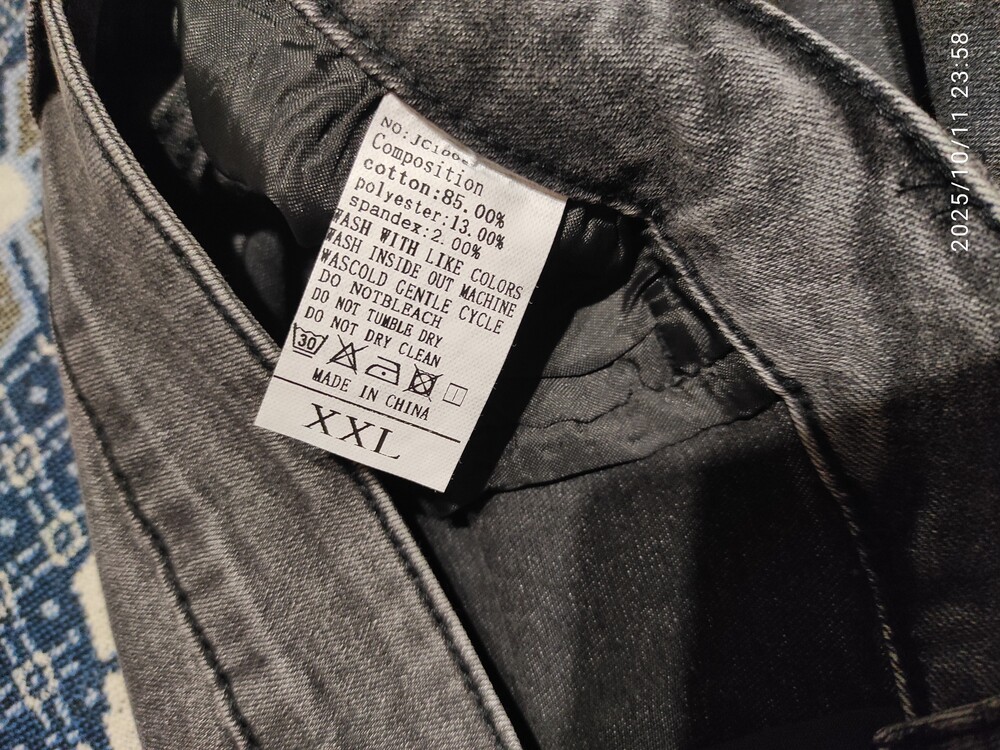 Composition
cotton:85.00%
polyester:13.00%
spandex:2.00%
WASH WITH LIKE COLORS
WASH INSIDE OUT MACHINE
WASCOLD GENTLE CYCLE
DO NOTBLEACH
DO NOT TUMBLE DRY
DO NOT DRY CLEAN
30
MADE IN CHINA
XXL
2025/10/11 23:58